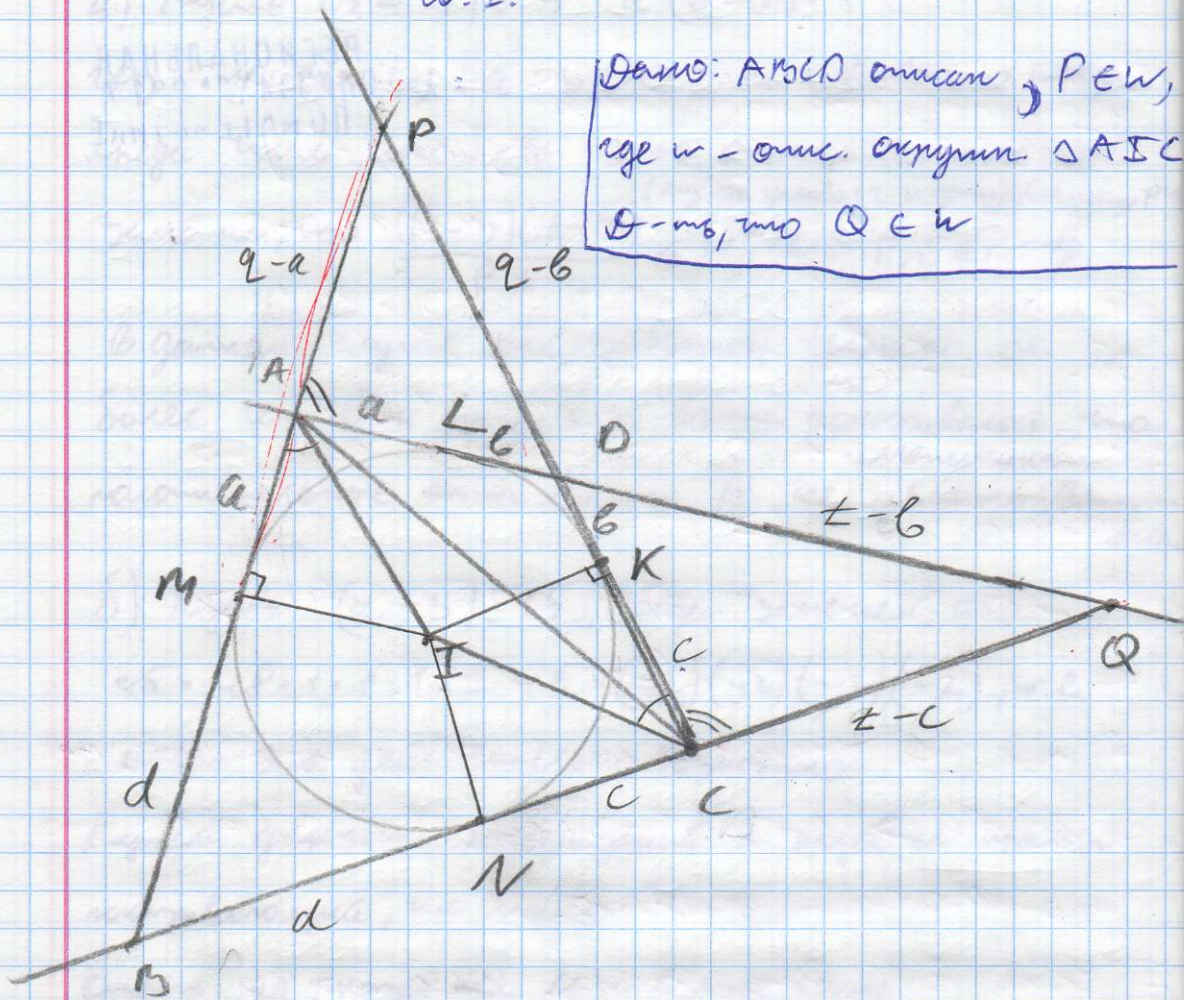 Дано: ABCD описан, P ∈ w,
где w - опис. окружн. △ AIC
Д-ть, что Q ∈ w
P
q-a
q-b
A
a
L
b
D
a
b
z-b
M
K
I
c
Q
z-c
d
c
C
N
d
B